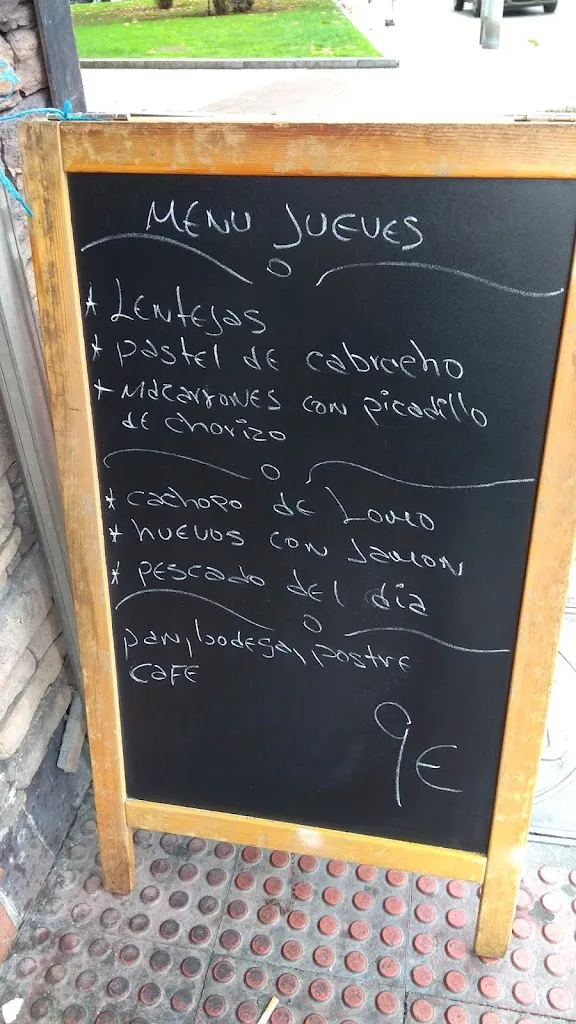 MENU JUEVES
* Lentejas
* pastel de cabracho
* Macarrones con picadillo
de chorizo
* cachopo de Lomo
* huevos con Jamon
* pescado del dia
pan, bodega, postre
CAFE
9€